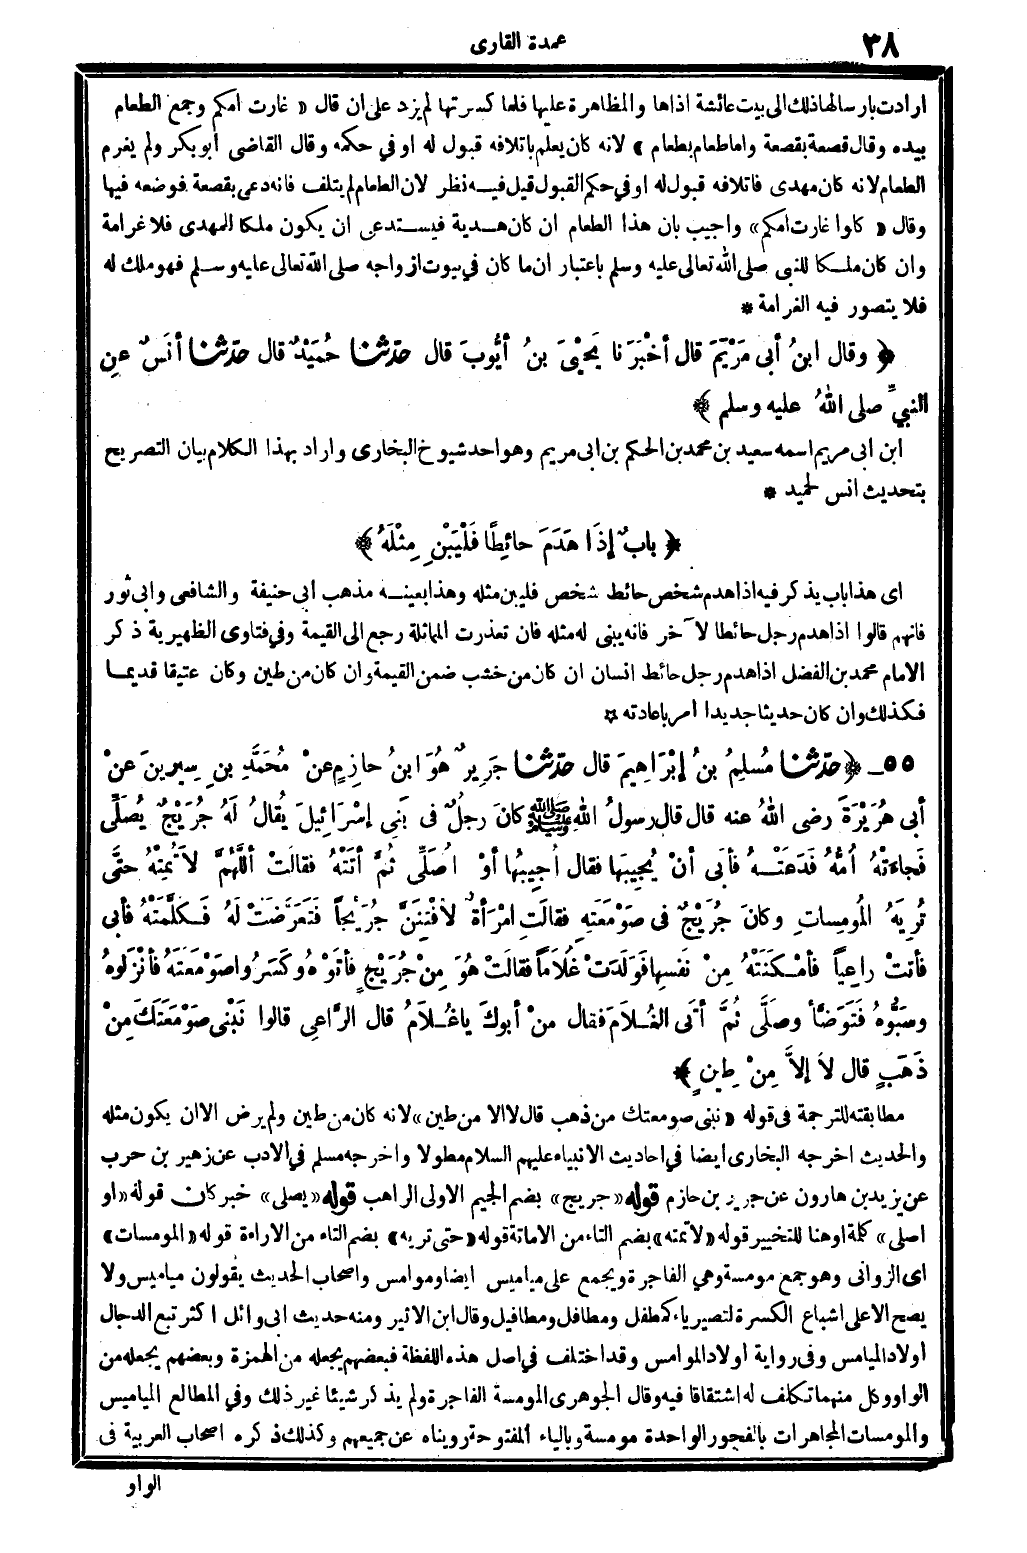 ٣٨
عمدة القارى
ارادت بارسالها ذلك الى بيت عائشة اذاها والمظاهرة عليها فلما كسرتها لم يزد على ان قال « غارت امكم وجمع الطعام
بيده وقال قصعة بقصعة واما طعام بطعام » لانه كان يعلم باتلافه قبول له او في حكمه وقال القاضى ابو بكر ولم يغرم
الطعام لانه كان مهدى فاتلافه قبول له او في حكم القبول قيل فيه نظر لان الطعام لم يتلف فانه دعى بقصعة فوضعه فيها
وقال « كلوا غارت امكم» واجيب بان هذا الطعام ان كان هدية فيستدعى ان يكون ملكا للمهدى فلا غرامة
وان كان ملكا للنبى صلى الله تعالى عليه وسلم باعتبار ان ما كان في بيوت ازواجه صلى الله تعالى عليه وسلم فهو ملك له
فلا يتصور فيه الغرامة *
﴿ وقال ابنُ أبى مَرْيَمَ قال أخْبَرَنا يَحْيٰى بنُ أيُّوبَ قال حدّثنا حُمَيْدٌ قال حدّثنا أنَسٌ عنِ
النبيِّ صلى اللهُ عليه وسلم ﴾
ابن ابى مريم اسمه سعيد بن محمد بن الحكم بن ابى مريم وهو احد شيوخ البخارى واراد بهذا الكلام بيان التصريح
بتحديث انس لحميد *
﴿ بابٌ إذَا هَدَمَ حائِطًا فَلْيَبْنِ مِثْلَهُ ﴾
اى هذا باب يذكر فيه اذا هدم شخص حائط شخص فليبن مثله وهذا بعينه مذهب أبى حنيفة والشافعى وابى ثور
فانهم قالوا اذا هدم رجل حائطا لآخر فانه يبنى له مثله فان تعذرت المماثلة رجع الى القيمة وفي فتاوى الظهيرية ذكر
الامام محمد بن الفضل اذا هدم رجل حائط انسان ان كان من خشب ضمن القيمة وان كان من طين وكان عتيقا قديما
فكذلك وان كان حديثا جديدا امر باعادته *
٥٥ _ ﴿ حدّثنا مُسلِمُ بنُ إبْرَاهِيمَ قال حدّثنا جَرِيرٌ هُوَ ابنُ حازِمٍ عنْ مُحَمَّدِ بنِ سِيرينَ عنْ
أبى هُرَيْرَةَ رضى اللهُ عنه قال قال رسولُ اللهِ ﷺ كانَ رجلٌ فى بَنِى إسْرَائِيلَ يُقالُ لَهُ جُرَيْجٌ يُصَلِّى
فَجاءَتْهُ أُمُّهُ فَدَعَتْهُ فأبَى أنْ يُجِيبَها فقال أُجِيبُها أوْ أُصَلِّى ثُمَّ أتَتْهُ فقالَتْ أللَّهُمَّ لاَ تُمِتْهُ حتَّى
تُرِيَهُ المُومِساتِ وكانَ جُرَيْجٌ فى صَوْمَعَتِهِ فقالَتِ امْرَأةٌ لأَفْتِنَنَّ جُرَيْجاً فَتَعَرَّضَتْ لَهُ فَكَلَّمَتْهُ فأبى
فأتَتْ راعِياً فأمْكَنَتْهُ مِنْ نَفسِها فَوَلَدَتْ غُلَاماً فقالَتْ هُوَ مِنْ جُرَيْجٍ فأتَوْهُ وكَسَرُوا صَوْمَعَتَهُ فأنْزَلوهُ
وسَبُّوهُ فَتَوَضَّأ وصَلَّى ثُمَّ أتَى الغُلَامَ فقال منْ أبوكَ ياغُلَامُ قال الرَّاعِى قالوا نَبْنِى صَوْمَعَتَكَ مِنْ
ذَهَبٍ قال لاَ إلاَّ مِنْ طِينٍ ﴾
مطابقته للترجمة فى قوله « نبنى صومعتك من ذهب قال لا الا من طين » لانه كان من طين ولم يرض الا ان يكون مثله
والحديث اخرجه البخارى أيضا في احاديث الانبياء عليهم السلام مطولا واخرجه مسلم في الادب عن زهير بن حرب
عن يزيد بن هارون عن جرير بن حازم قوله « جريج » بضم الجيم الاولى الراهب قوله « يصلى » خبر كان قوله « او
اصلى » كلمة او هنا للتخيير قوله « لا تمته » بضم التاء من الاماتة قوله « حتى تريه » بضم التاء من الاراءة قوله « المومسات »
اى الزوانى وهو جمع مومسة وهي الفاجرة ويجمع على مياميس ايضا وموامس واصحاب الحديث يقولون مياميس ولا
يصح الا على اشباع الكسرة لتصير ياء كمطفل ومطافل ومطافيل وقال ابن الاثير ومنه حديث ابى وائل اكثر تبع الدجال
أولاد الميامس وفى رواية اولاد الموامس وقد اختلف في اصل هذه اللفظة فبعضهم يجعله من الهمزة وبعضهم يجعله من
الواو وكل منهما تكلف له اشتقاقا فيه وقال الجوهرى المومسة الفاجرة ولم يذكر شيئا غير ذلك وفي المطالع المياميس
والمومسات المجاهرات بالفجور الواحدة مومسة وبالياء المفتوحة رويناه عن جميعهم وكذلك ذكره اصحاب العربية فى
الواو